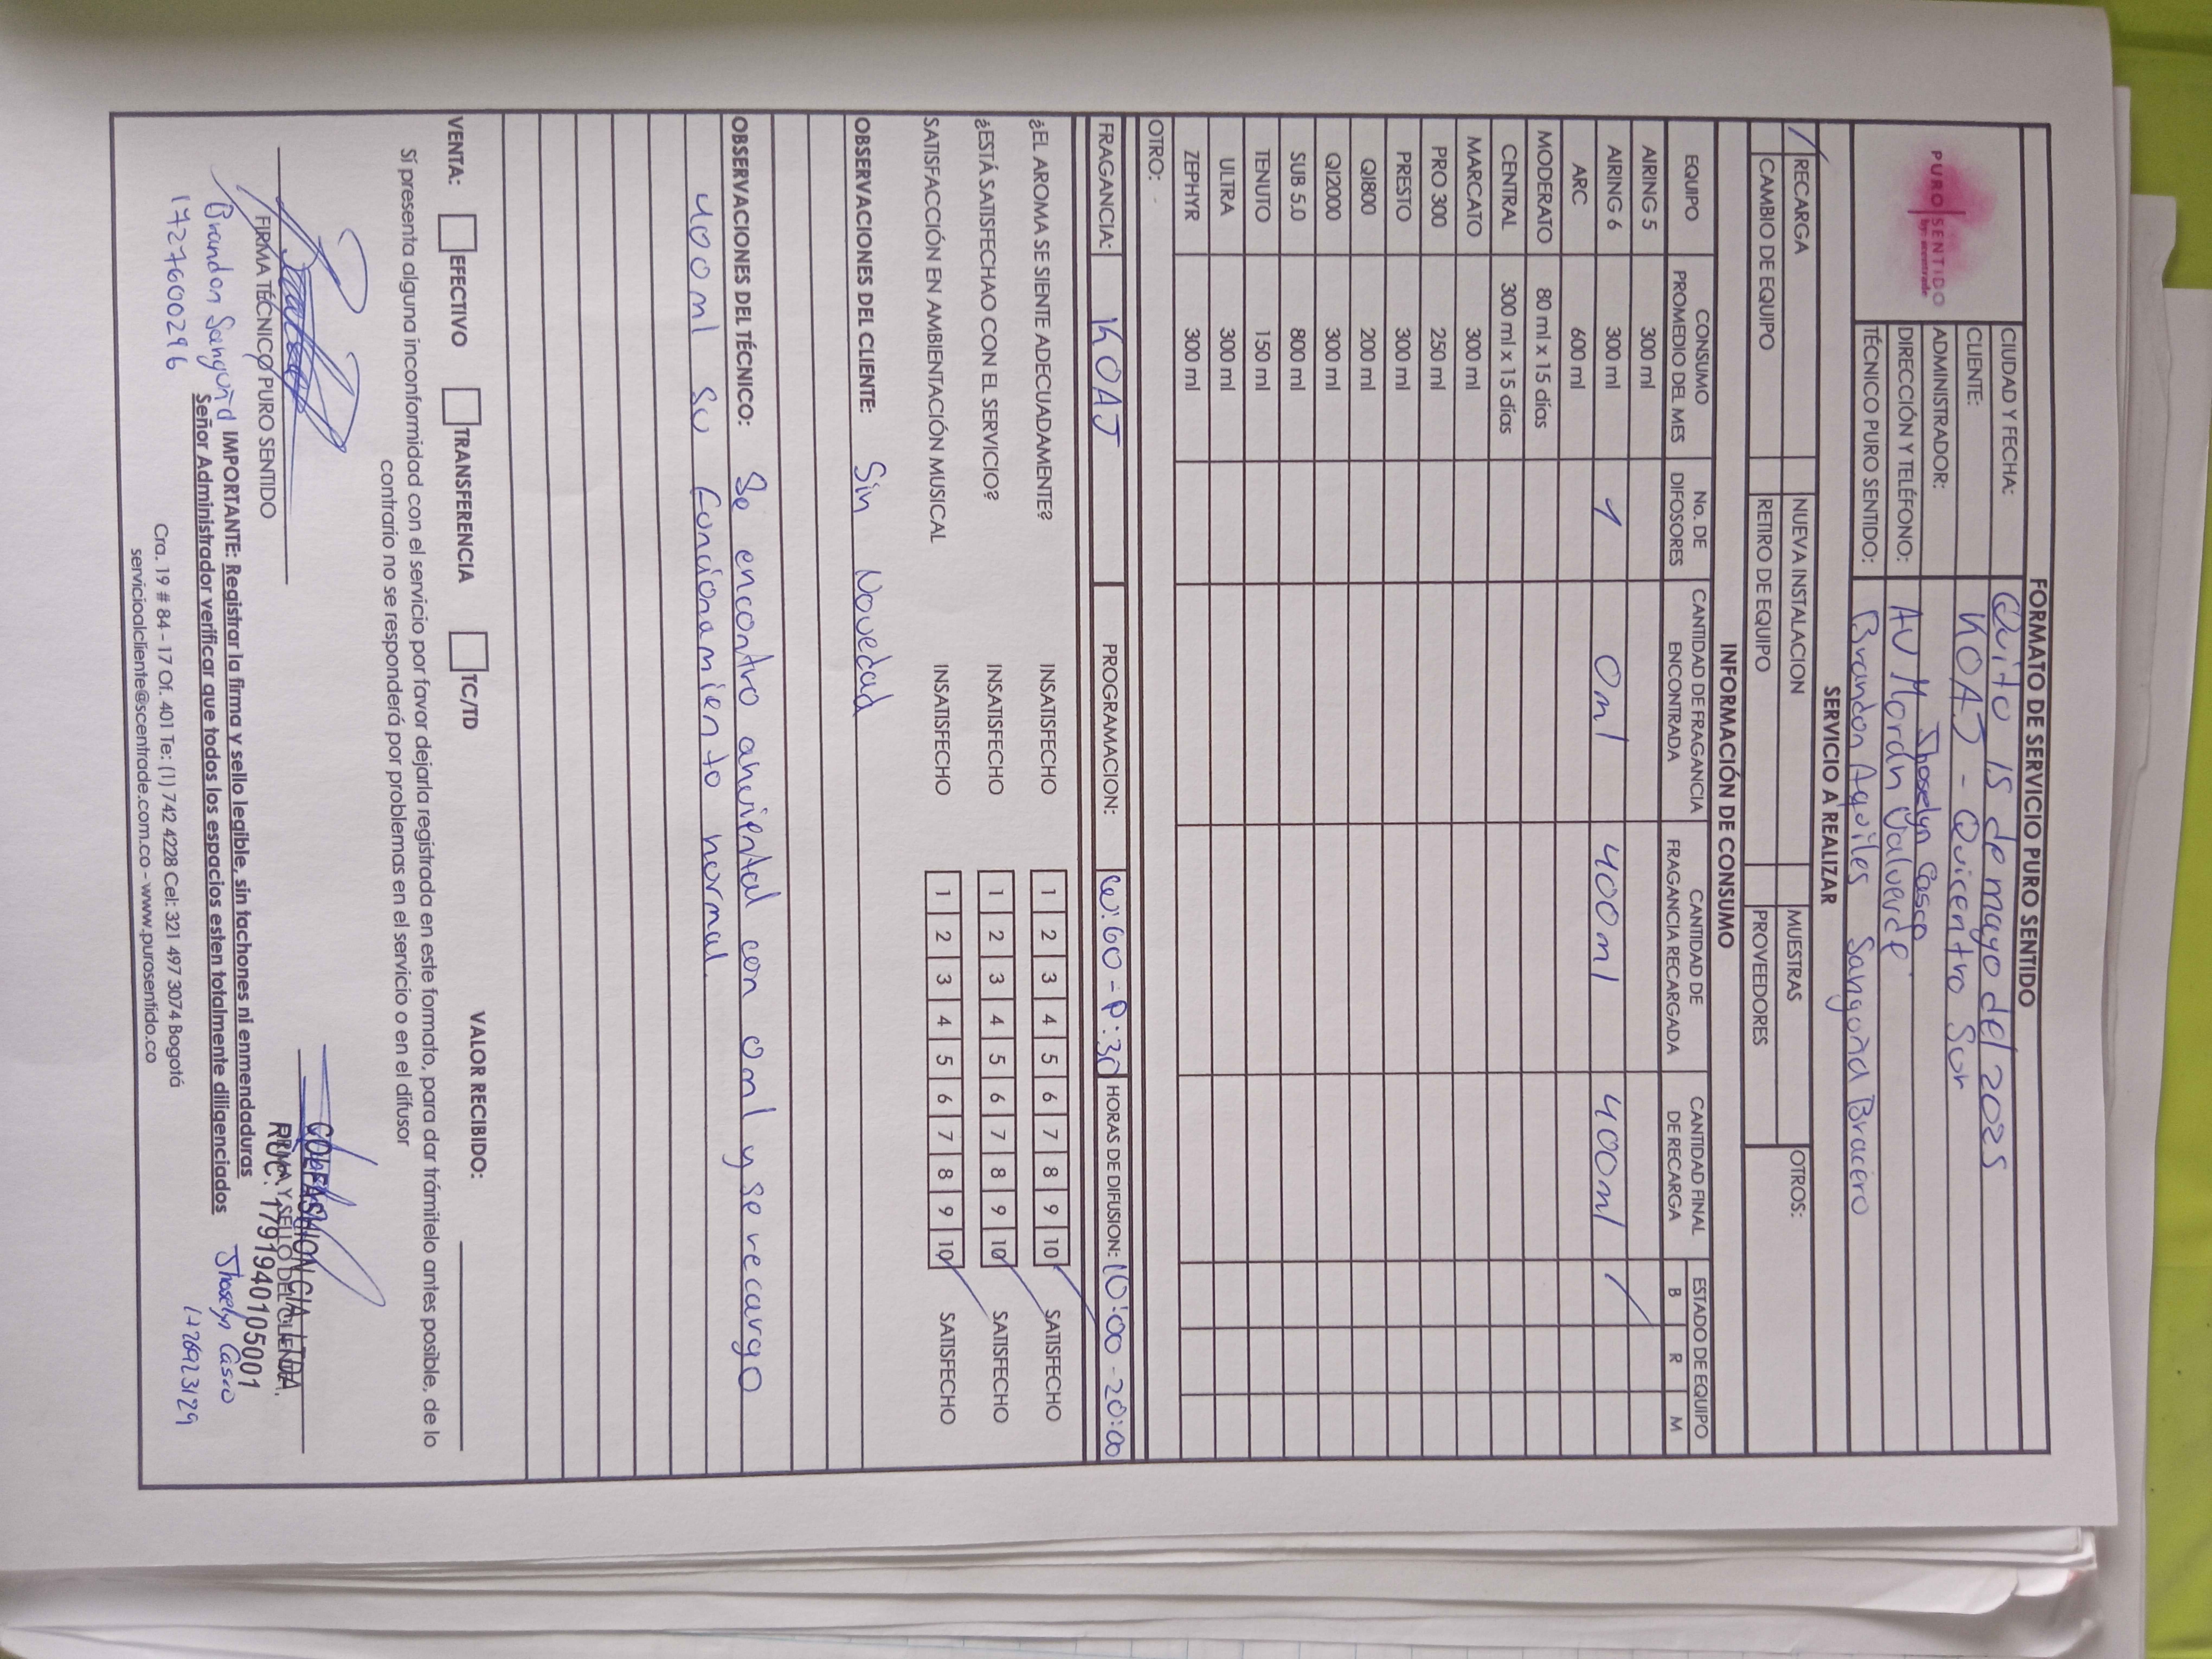 FORMATO DE SERVICIO PURO SENTIDO
PURO SENTIDO
by: scentrade
CIUDAD Y FECHA: Quito 15 de mayo del 2025
CLIENTE: KOAJ - Quicentro Sur
ADMINISTRADOR: Jhoselyn Casco
DIRECCIÓN Y TELÉFONO: AV Morán Valverde.
TÉCNICO PURO SENTIDO: Brandon Aquiles Sangoña Bracero
SERVICIO A REALIZAR
RECARGA NUEVA INSTALACION MUESTRAS OTROS:
CAMBIO DE EQUIPO RETIRO DE EQUIPO PROVEEDORES
INFORMACIÓN DE CONSUMO
EQUIPO CONSUMO PROMEDIO DEL MES No. DE DIFOSORES CANTIDAD DE FRAGANCIA ENCONTRADA CANTIDAD DE FRAGANCIA RECARGADA CANTIDAD FINAL DE RECARGA ESTADO DE EQUIPO
B R M
AIRING 5 300 ml
AIRING 6 300 ml 1 0ml 400ml 400ml /
ARC 600 ml
MODERATO 80 ml x 15 días
CENTRAL 300 ml x 15 días
MARCATO 300 ml
PRO 300 250 ml
PRESTO 300 ml
QI800 200 ml
QI2000 300 ml
SUB 5.0 800 ml
TENUTO 150 ml
ULTRA 300 ml
ZEPHYR 300 ml
OTRO: -
FRAGANCIA: KOAJ PROGRAMACION: W:60 - P:30 HORAS DE DIFUSION: 10:00 - 20:00
¿EL AROMA SE SIENTE ADECUADAMENTE? INSATISFECHO 1 2 3 4 5 6 7 8 9 10 SATISFECHO
¿ESTÁ SATISFECHAO CON EL SERVICIO? INSATISFECHO 1 2 3 4 5 6 7 8 9 10 SATISFECHO
SATISFACCIÓN EN AMBIENTACIÓN MUSICAL INSATISFECHO 1 2 3 4 5 6 7 8 9 10 SATISFECHO
OBSERVACIONES DEL CLIENTE: Sin Novedad
OBSERVACIONES DEL TÉCNICO: Se encontro anviental con 0ml y se recargo
400ml su funcionamiento normal.
VENTA: EFECTIVO TRANSFERENCIA TC/TD VALOR RECIBIDO:
Sí presenta alguna inconformidad con el servicio por favor dejarla registrada en este formato, para dar trámitelo antes posible, de lo
contrario no se responderá por problemas en el servicio o en el difusor
COLFASHION CIA. LTDA.
FIRMA TÉCNICO PURO SENTIDO FIRMA Y SELLO DEL CLIENTE
RUC: 1791940105001
Brandon Sangoña
1727600296
IMPORTANTE: Registrar la firma y sello legible, sin tachones ni enmendaduras
Señor Administrador verificar que todos los espacios esten totalmente diligenciados
Jhoselyn Casco
1726923129
Cra. 19 # 84 - 17 Of. 401 Te: (1) 742 4228 Cel: 321 497 3074 Bogotá
servicioalcliente@scentrade.com.co - www.purosentido.co